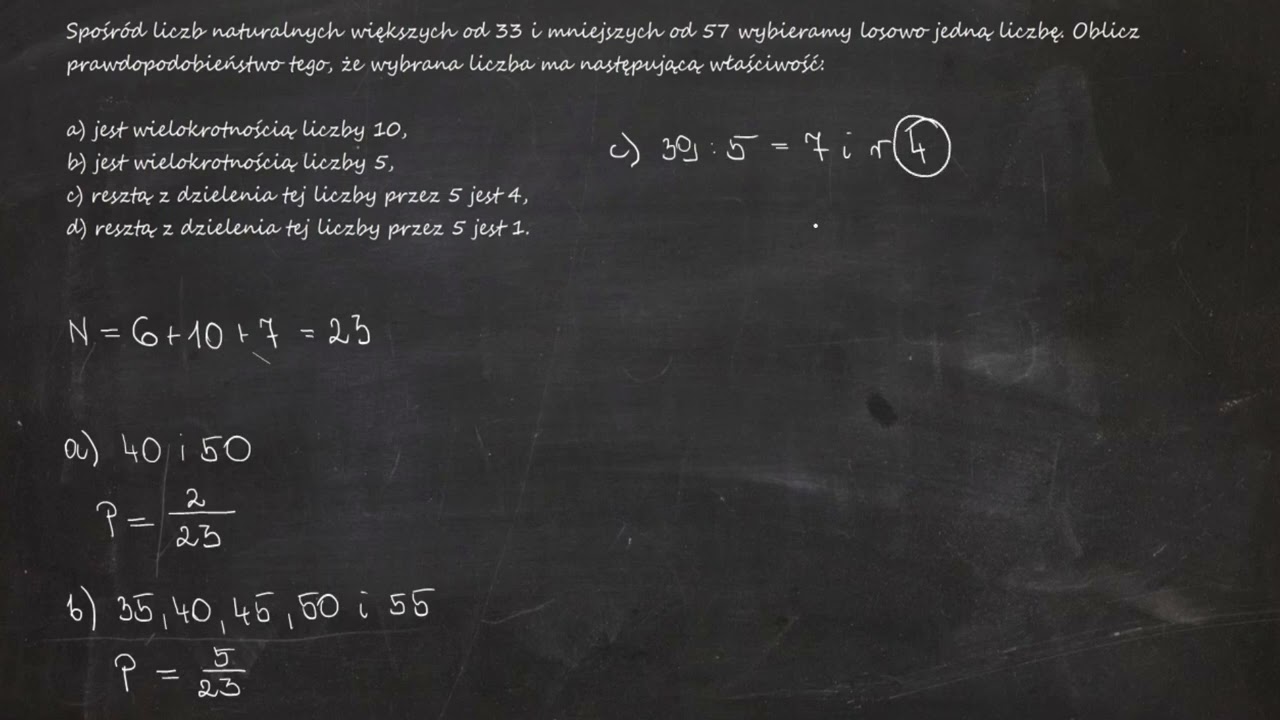 Spośród liczb naturalnych większych od 33 i mniejszych od 57 wybieramy losowo jedną liczbę. Oblicz
prawdopodobieństwo tego, że wybrana liczba ma następującą właściwość:
a) jest wielokrotnością liczby 10,
b) jest wielokrotnością liczby 5,
c) resztą z dzielenia tej liczby przez 5 jest 4,
d) resztą z dzielenia tej liczby przez 5 jest 1.
c) 39 : 5 = 7 i r 4
N = 6 + 10 + 7 = 23
a) 40 i 50
P = 2/23
b) 35, 40, 45, 50 i 55
P = 5/23